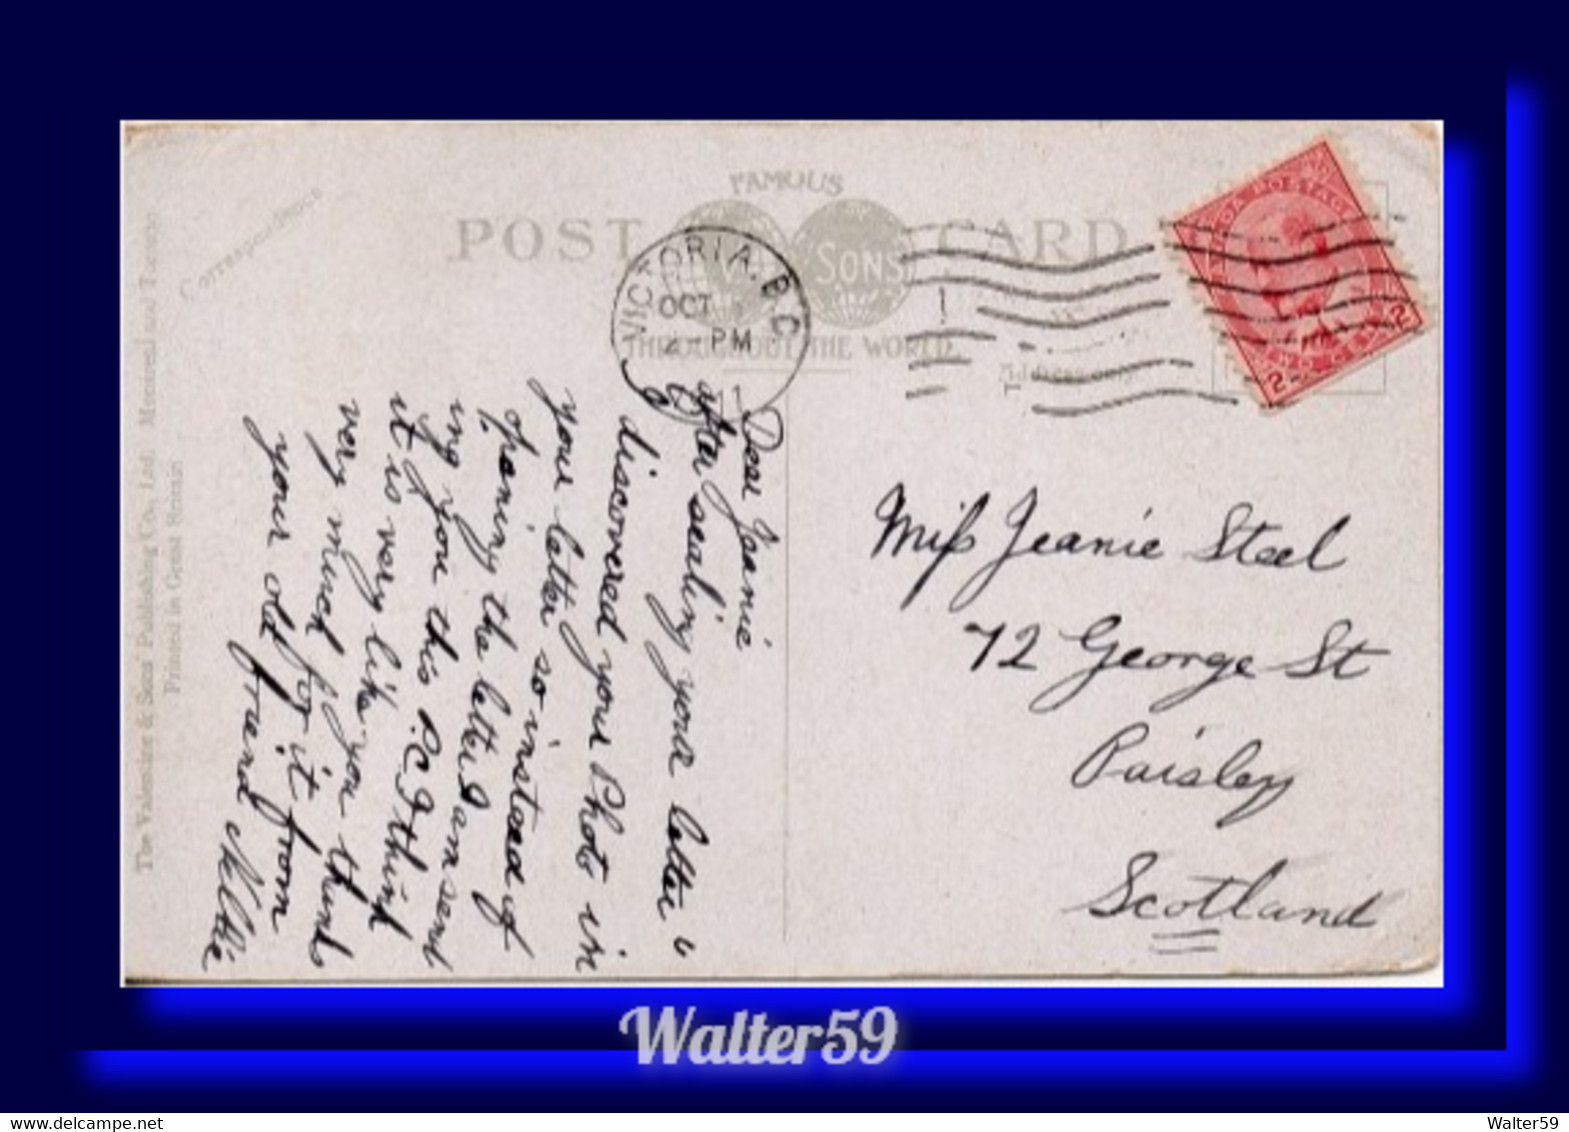 Correspondence
FAMOUS
POST CARD
SONS
THROUGHOUT THE WORLD
VICTORIA, B.C.
OCT
PM
1
DA POSTAGE
2 2
The Valentine & Sons' Publishing Co., Ltd. Montreal and Toronto
Printed in Great Britain
Dear Jeanie
after sealing your letter I
discovered your Photo in
your letter so instead of
opening the letter I am send
ing you this P.C I think
it is very like you
very much for it
your old friend Nellie
Miss Jeanie Steel
72 George St
Paisley
Scotland
Walter59
Walter59